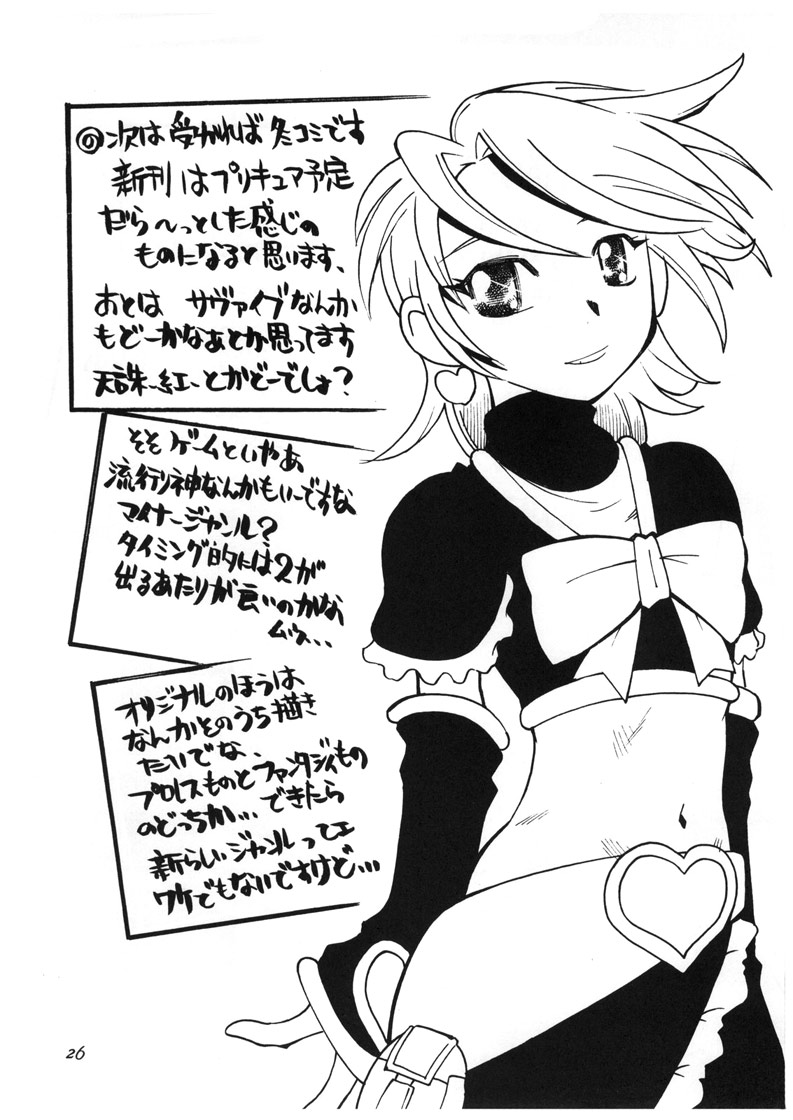 ◎次は受かれば冬コミです
新刊はプリキュア予定
だら〜っとした感じの
ものになると思います、
あとは サヴァイブなんか
もどーかなぁとか思ってます
天誅-紅-とかどーでしょ?
そそ ゲームといやあ
流行り神なんかもいーですな
マイナージャンル?
タイミング的には2が
出るあたりが良いのかな
ムゥ…
オリジナルのほうは
なんかそのうち描き
たいでな、
プロレスものとファンタジィもの
のどっちか… できたら
新らしいジャンルってェ
ワケでもないですけど…
26